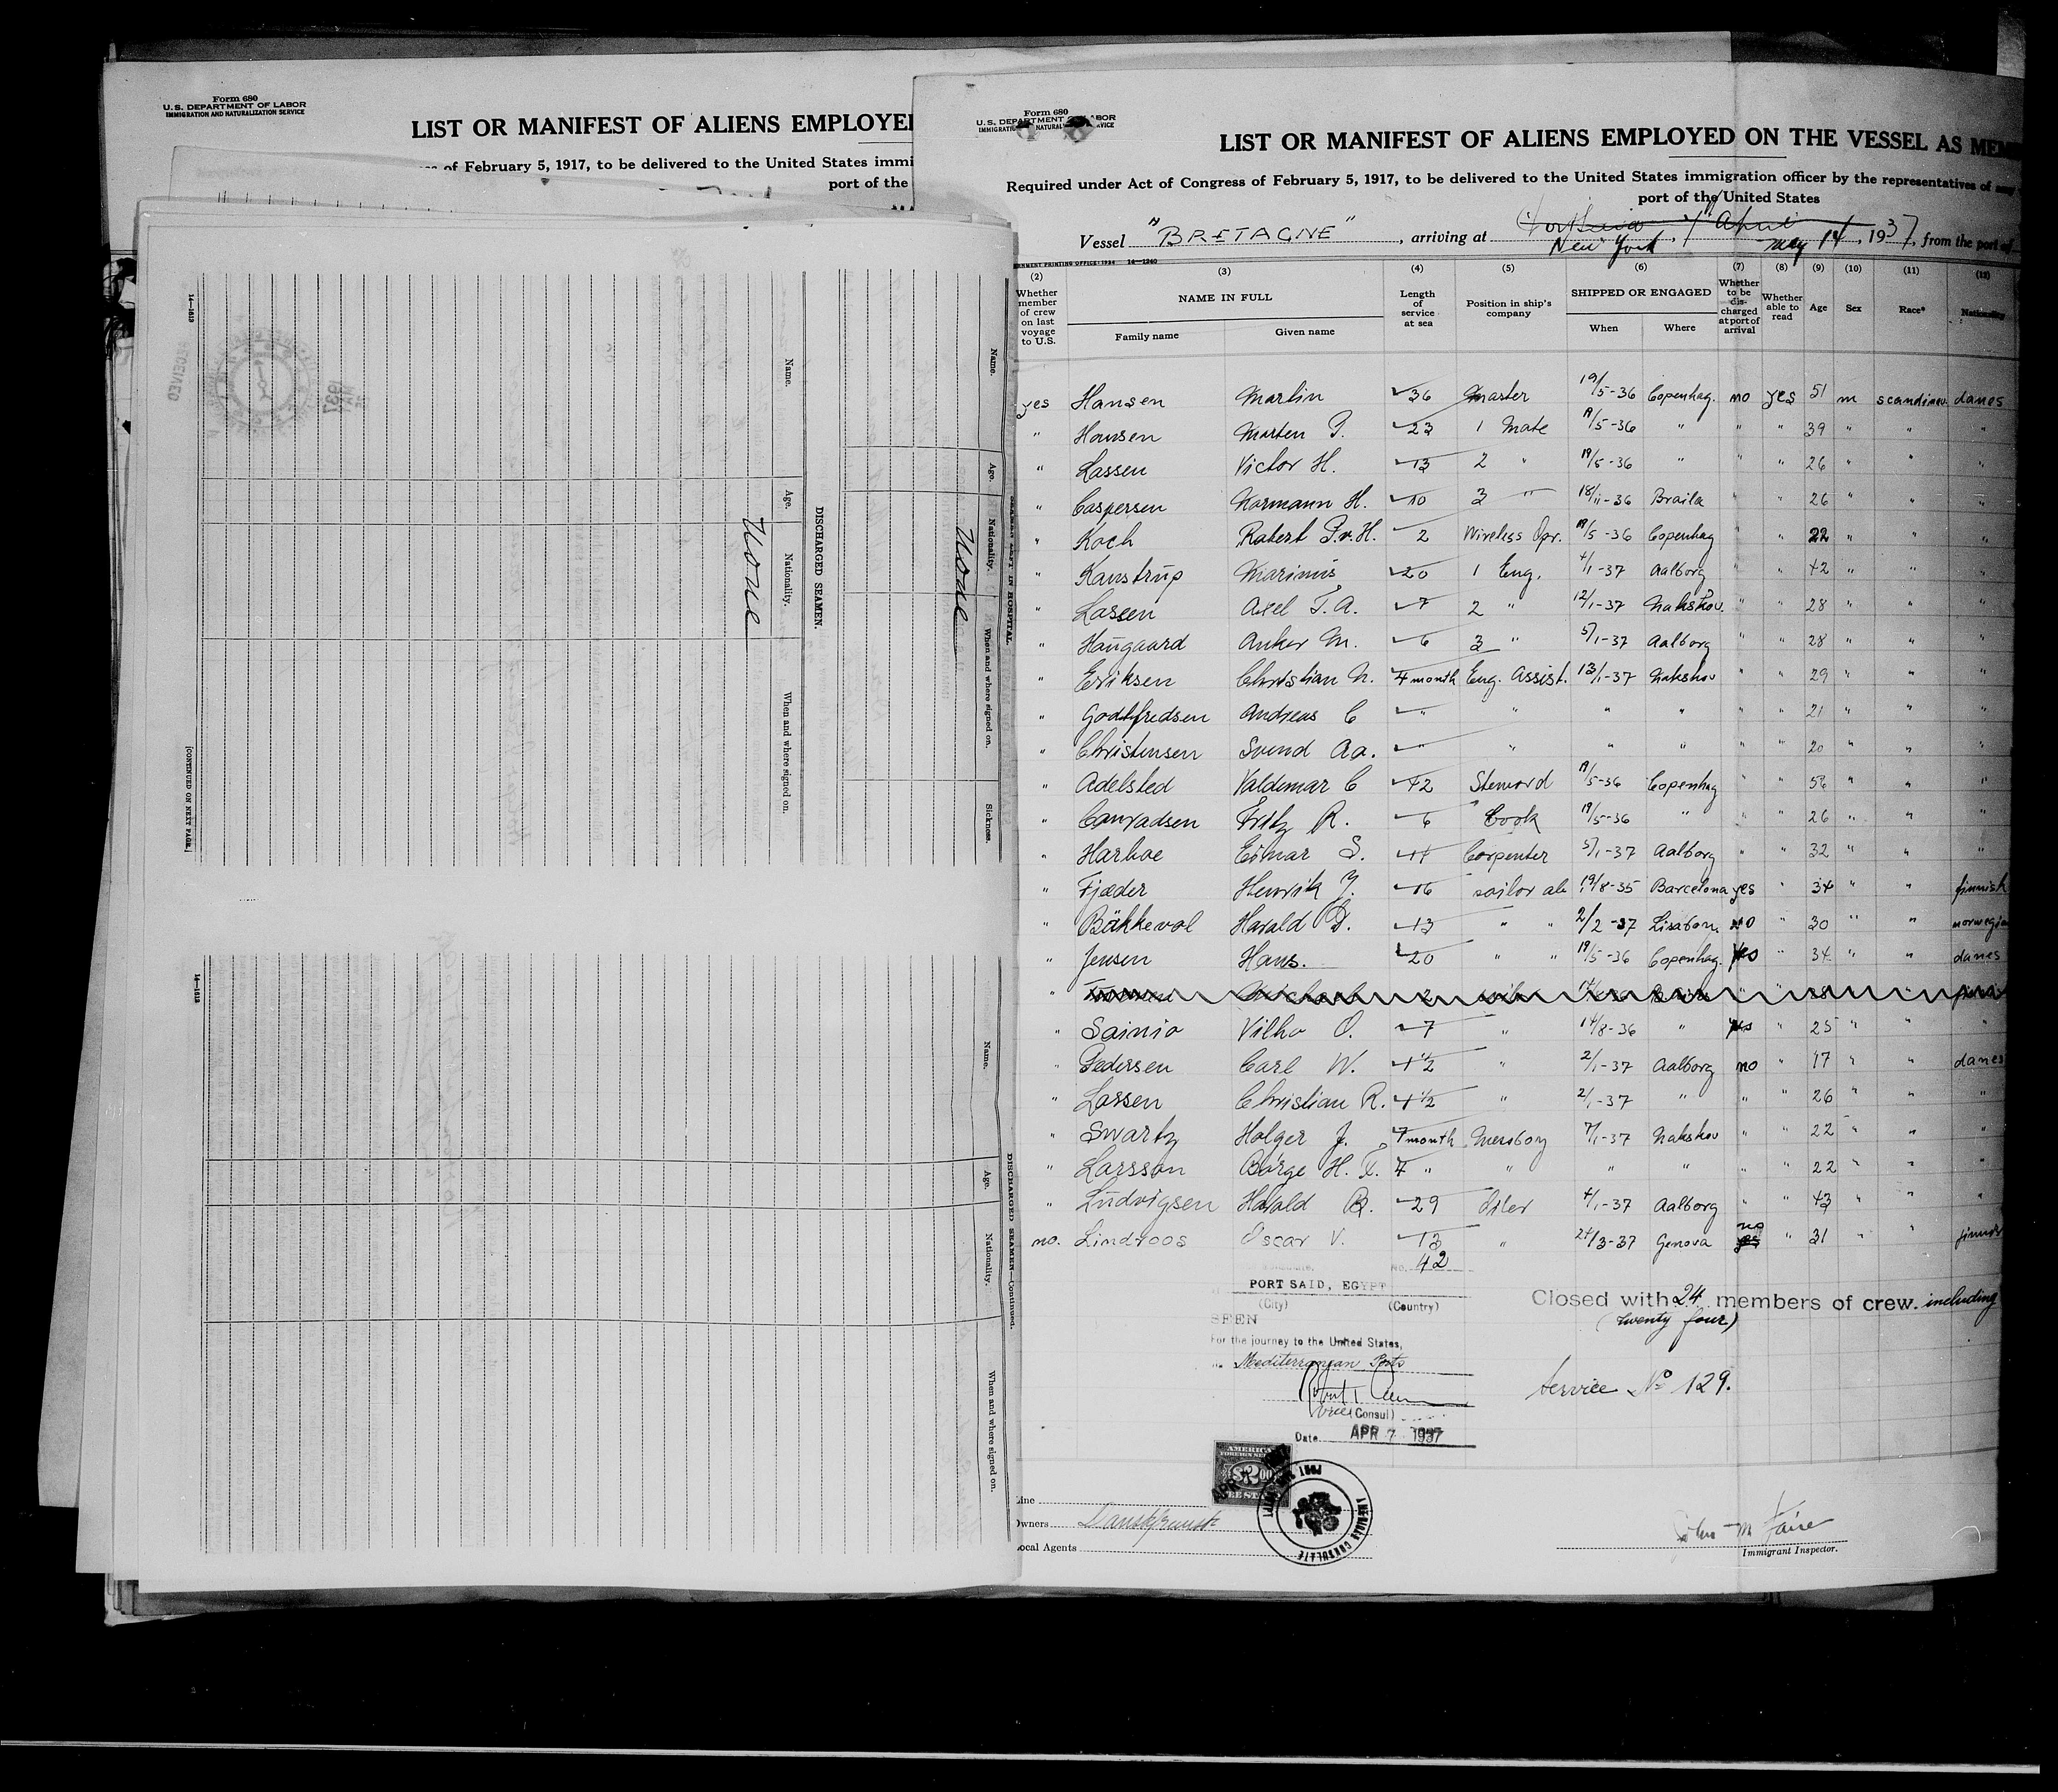 Form 680
U.S. DEPARTMENT OF LABOR
IMMIGRATION AND NATURALIZATION SERVICE
LIST OR MANIFEST OF ALIENS EMPLOYE
of February 5, 1917, to be delivered to the United States immi
port of the
14—1613
RECEIVED
1937
Name.
Age.
Nationality.
When and where signed on.
Sickness.
None
SEAMEN LEFT IN HOSPITAL
DISCHARGED SEAMEN.
Name.
Age.
Nationality.
When and where signed on.
None
[CONTINUED ON NEXT PAGE.]
14—1613
DISCHARGED SEAMEN—Continued.
Name.
Age.
Nationality.
When and where signed on.
Form 680
U.S. DEPARTMENT OF LABOR
LIST OR MANIFEST OF ALIENS EMPLOYED ON THE VESSEL AS MEM
Required under Act of Congress of February 5, 1917, to be delivered to the United States immigration officer by the representatives of any
port of the United States
Vessel "BRETAGNE", arriving at New York, May 14, 1937, from the port of
(2) (3) (4) (5) (6) (7) (8) (9) (10) (11) (12)
Whether member of crew on last voyage to U.S.
NAME IN FULL
Family name Given name
Length of service at sea
Position in ship's company
SHIPPED OR ENGAGED
When Where
Whether to be discharged at port of arrival
Whether able to read
Age Sex Race* Nationality
yes Hansen Martin 36 Master 19/5-36 Copenhag. no yes 51 m scandinav. danes
" Hansen Morten P. 23 1 Mate 19/5-36 " " " 39 " " "
" Lassen Victor H. 13 2 " 19/5-36 " " " 26 " " "
" Caspersen Normann H. 10 3 " 18/11-36 Braila " " 26 " " "
" Koch Robert P.v.H. 2 Wireless Opr. 19/5-36 Copenhag " " 22 " " "
" Kanstrup Marinus 20 1 Eng. 4/1-37 Aalborg " " 42 " " "
" Lassen Axel T.A. 7 2 " 12/1-37 Nakskov. " " 28 " " "
" Haugaard Anker M. 6 3 " 5/1-37 Aalborg " " 28 " " "
" Eriksen Christian N. 4 month Eng. Assist. 13/1-37 Nakskov " " 29 " " "
" Godtfredsen Andreas C " " " " " " 21 " " "
" Christensen Svend Aa. " " " " " " 20 " " "
" Adelsted Valdemar C 42 Steward 19/5-36 Copenhag " " 56 " "
" Conradsen Fritz R. 6 Cook 19/5-36 " " " 26 " " "
" Harboe Ejnar S. 11 Carpenter 5/1-37 Aalborg " " 32 " " "
" Fjæder Henrik Y. 16 sailor ab 19/8-35 Barcelona yes " 34 " " finnish
" Bäkkevol Harald D. 13 " " 2/2-37 Lisabon no " 30 " " norwegia
" Jensen Hans. 20 " " 19/5-36 Copenhag. " 34 " " danes
" Sainio Vilho O. 7 " 14/8-36 " " 25 " " "
" Pedersen Carl W. 1½ " 2/1-37 Aalborg no " 17 " " danes
" Lassen Christian R. 1½ " 2/1-37 " " " 26 " " "
" Swartz Holger J. 4 month Messboy 7/1-37 Nakskov " " 22 " " "
" Larsson Börge H. F. 4 " " " " " " 22 " " "
" Ludvigsen Harald B. 29 Oiler 4/1-37 Aalborg " " 43 " " "
no. Lindroos Oscar V. 13 " 24/3-37 Genova no yes " 31 " "
No. 42
PORT SAID, EGYPT
(City) (Country)
SEEN
For the journey to the United States,
Mediterranean Ports
Vice (Consul)
Date APR 7 1937
Closed with 24 members of crew. including
(twenty four)
Service No 129.
AMERICAN
FOREIGN SERVICE
$2.00
FEE STAMP
AMERICAN CONSULATE
Line
Owners
Local Agents
John M Faire
Immigrant Inspector.